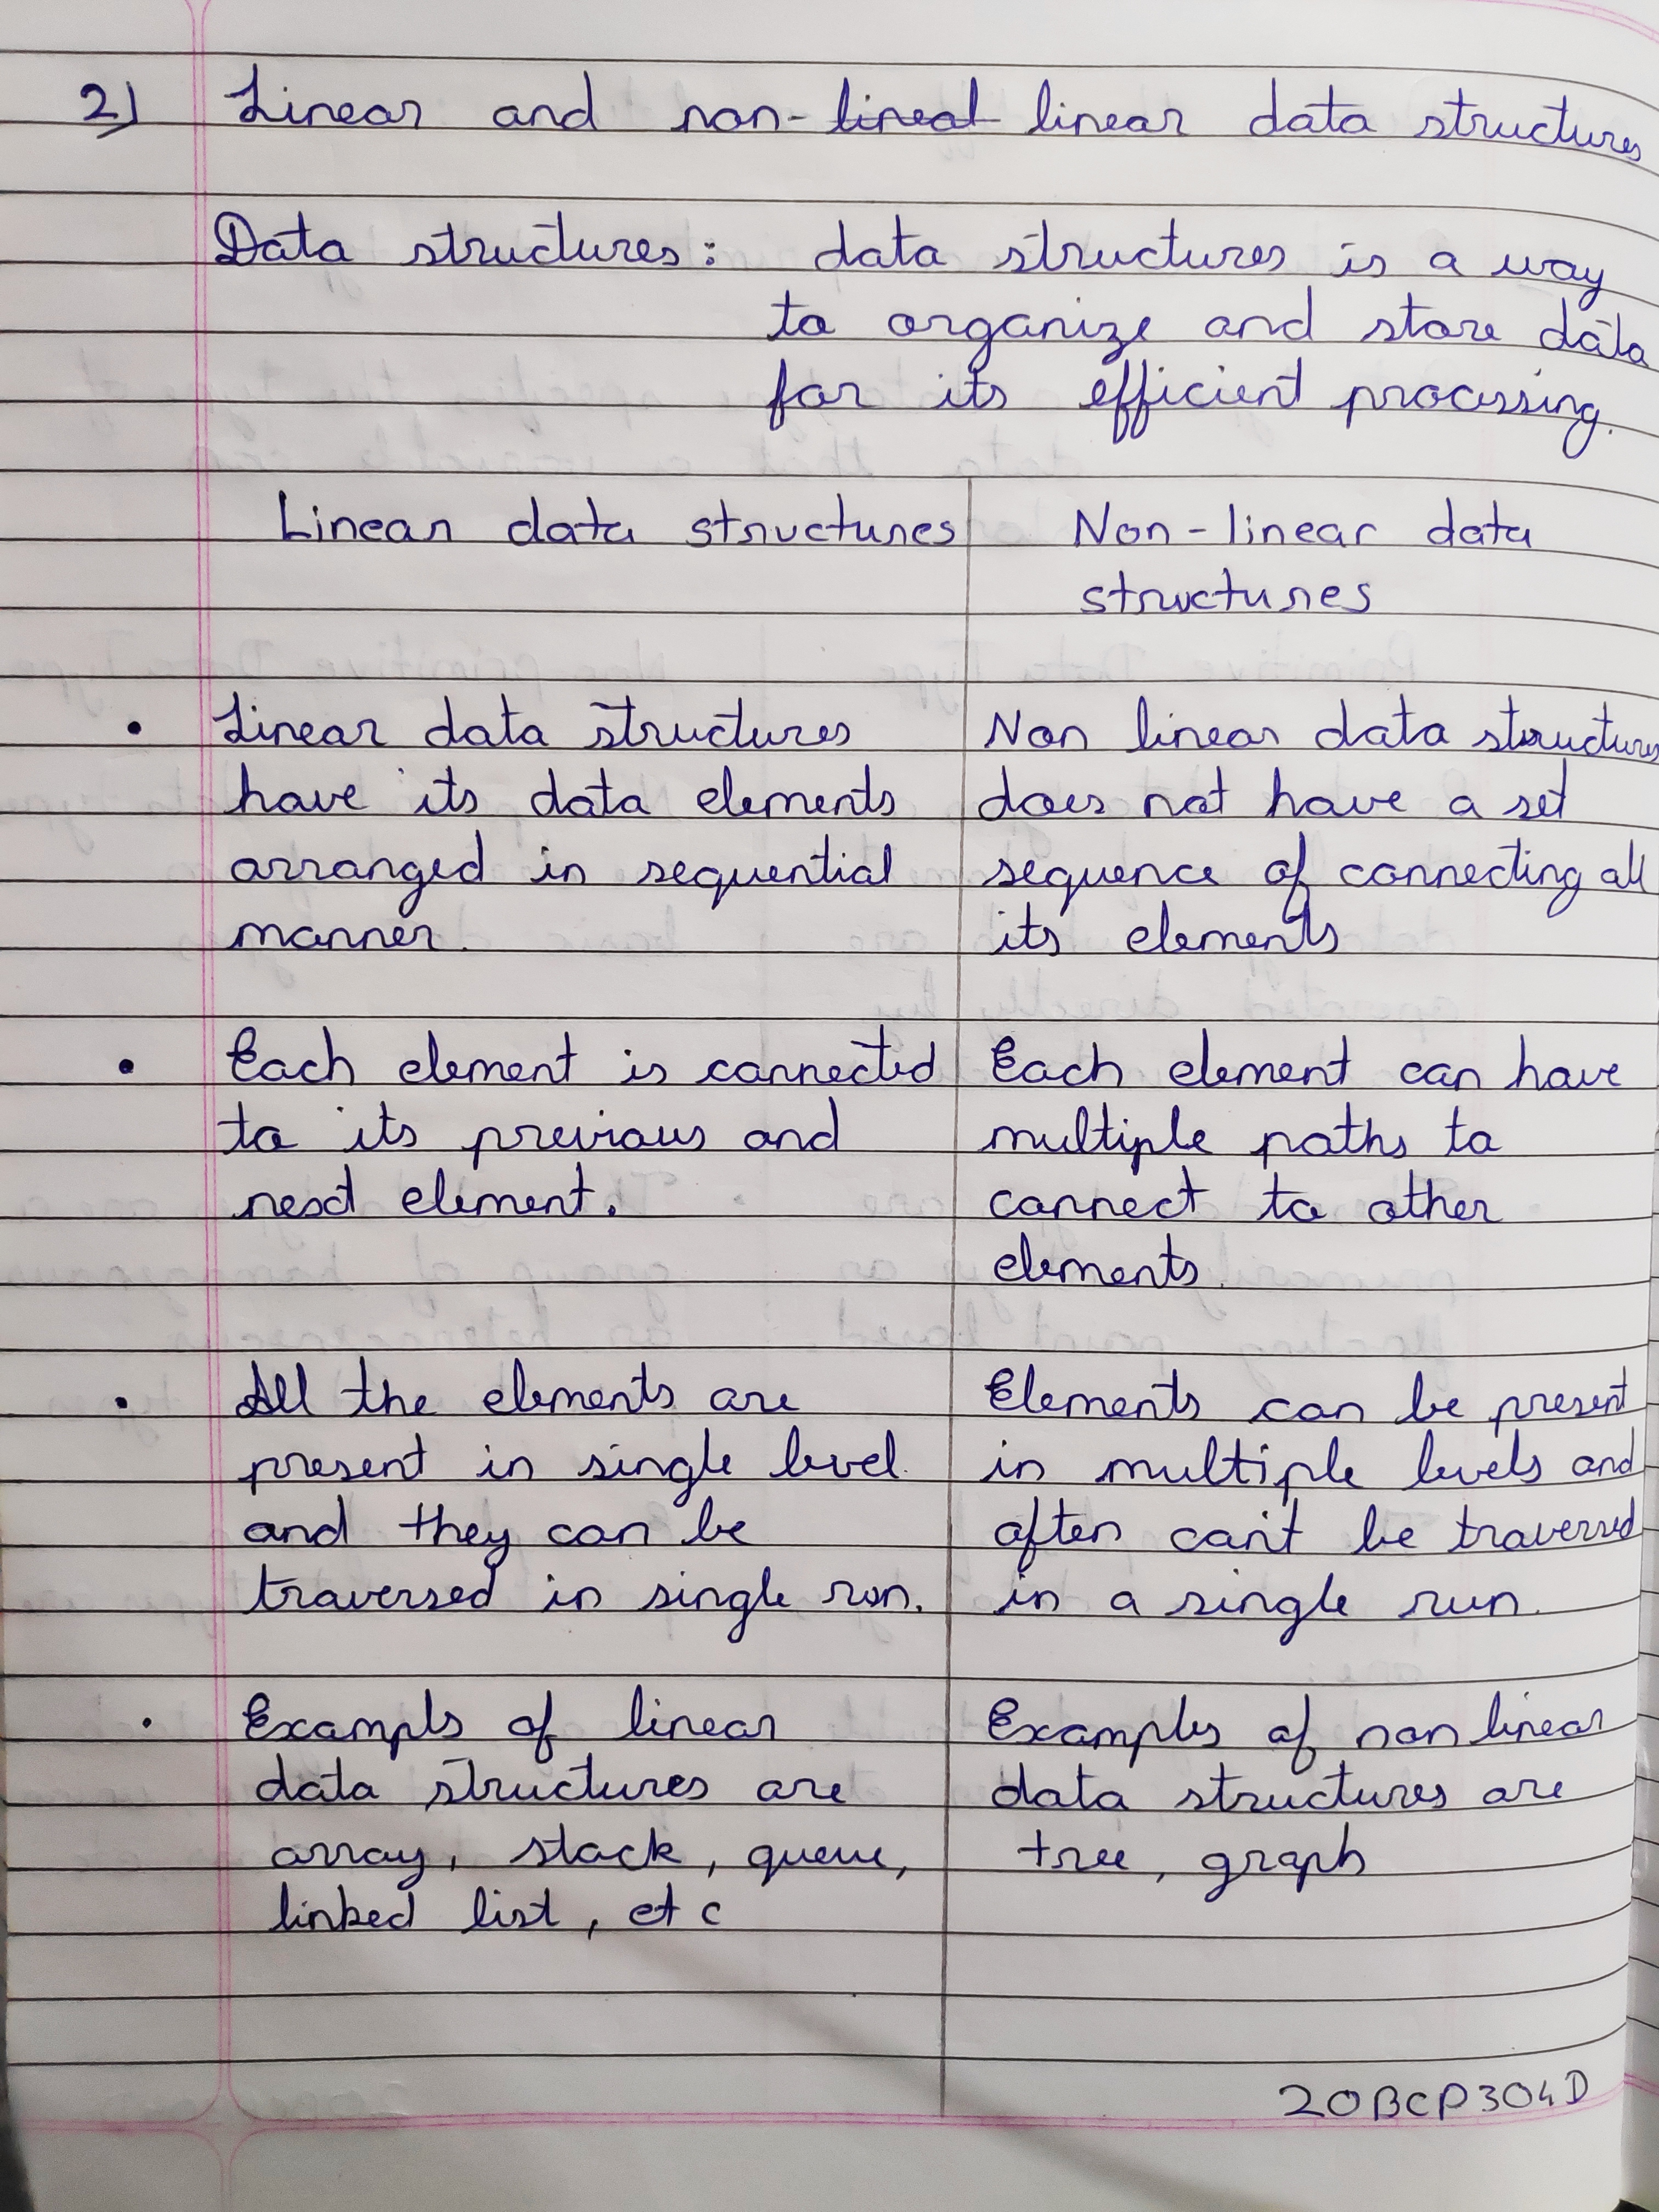 2) Linear and non-lineal linear data structures
Data structures: data structures is a way
to organize and store data
for its efficient processing.
Linear data structures
Non-linear data
structures
• Linear data structures
have its data elements
arranged in sequential
manner.
Non linear data structures
does not have a set
sequence of connecting all
its elements
• Each element is connected
to its previous and
next element.
Each element can have
multiple paths to
connect to other
elements.
• All the elements are
present in single level
and they can be
traversed in single run.
Elements can be present
in multiple levels and
often can't be traversed
in a single run.
• Exampls of linear
data structures are
array, stack, queue,
linked list, etc
Examples of non linear
data structures are
tree, graph
20BCP304D